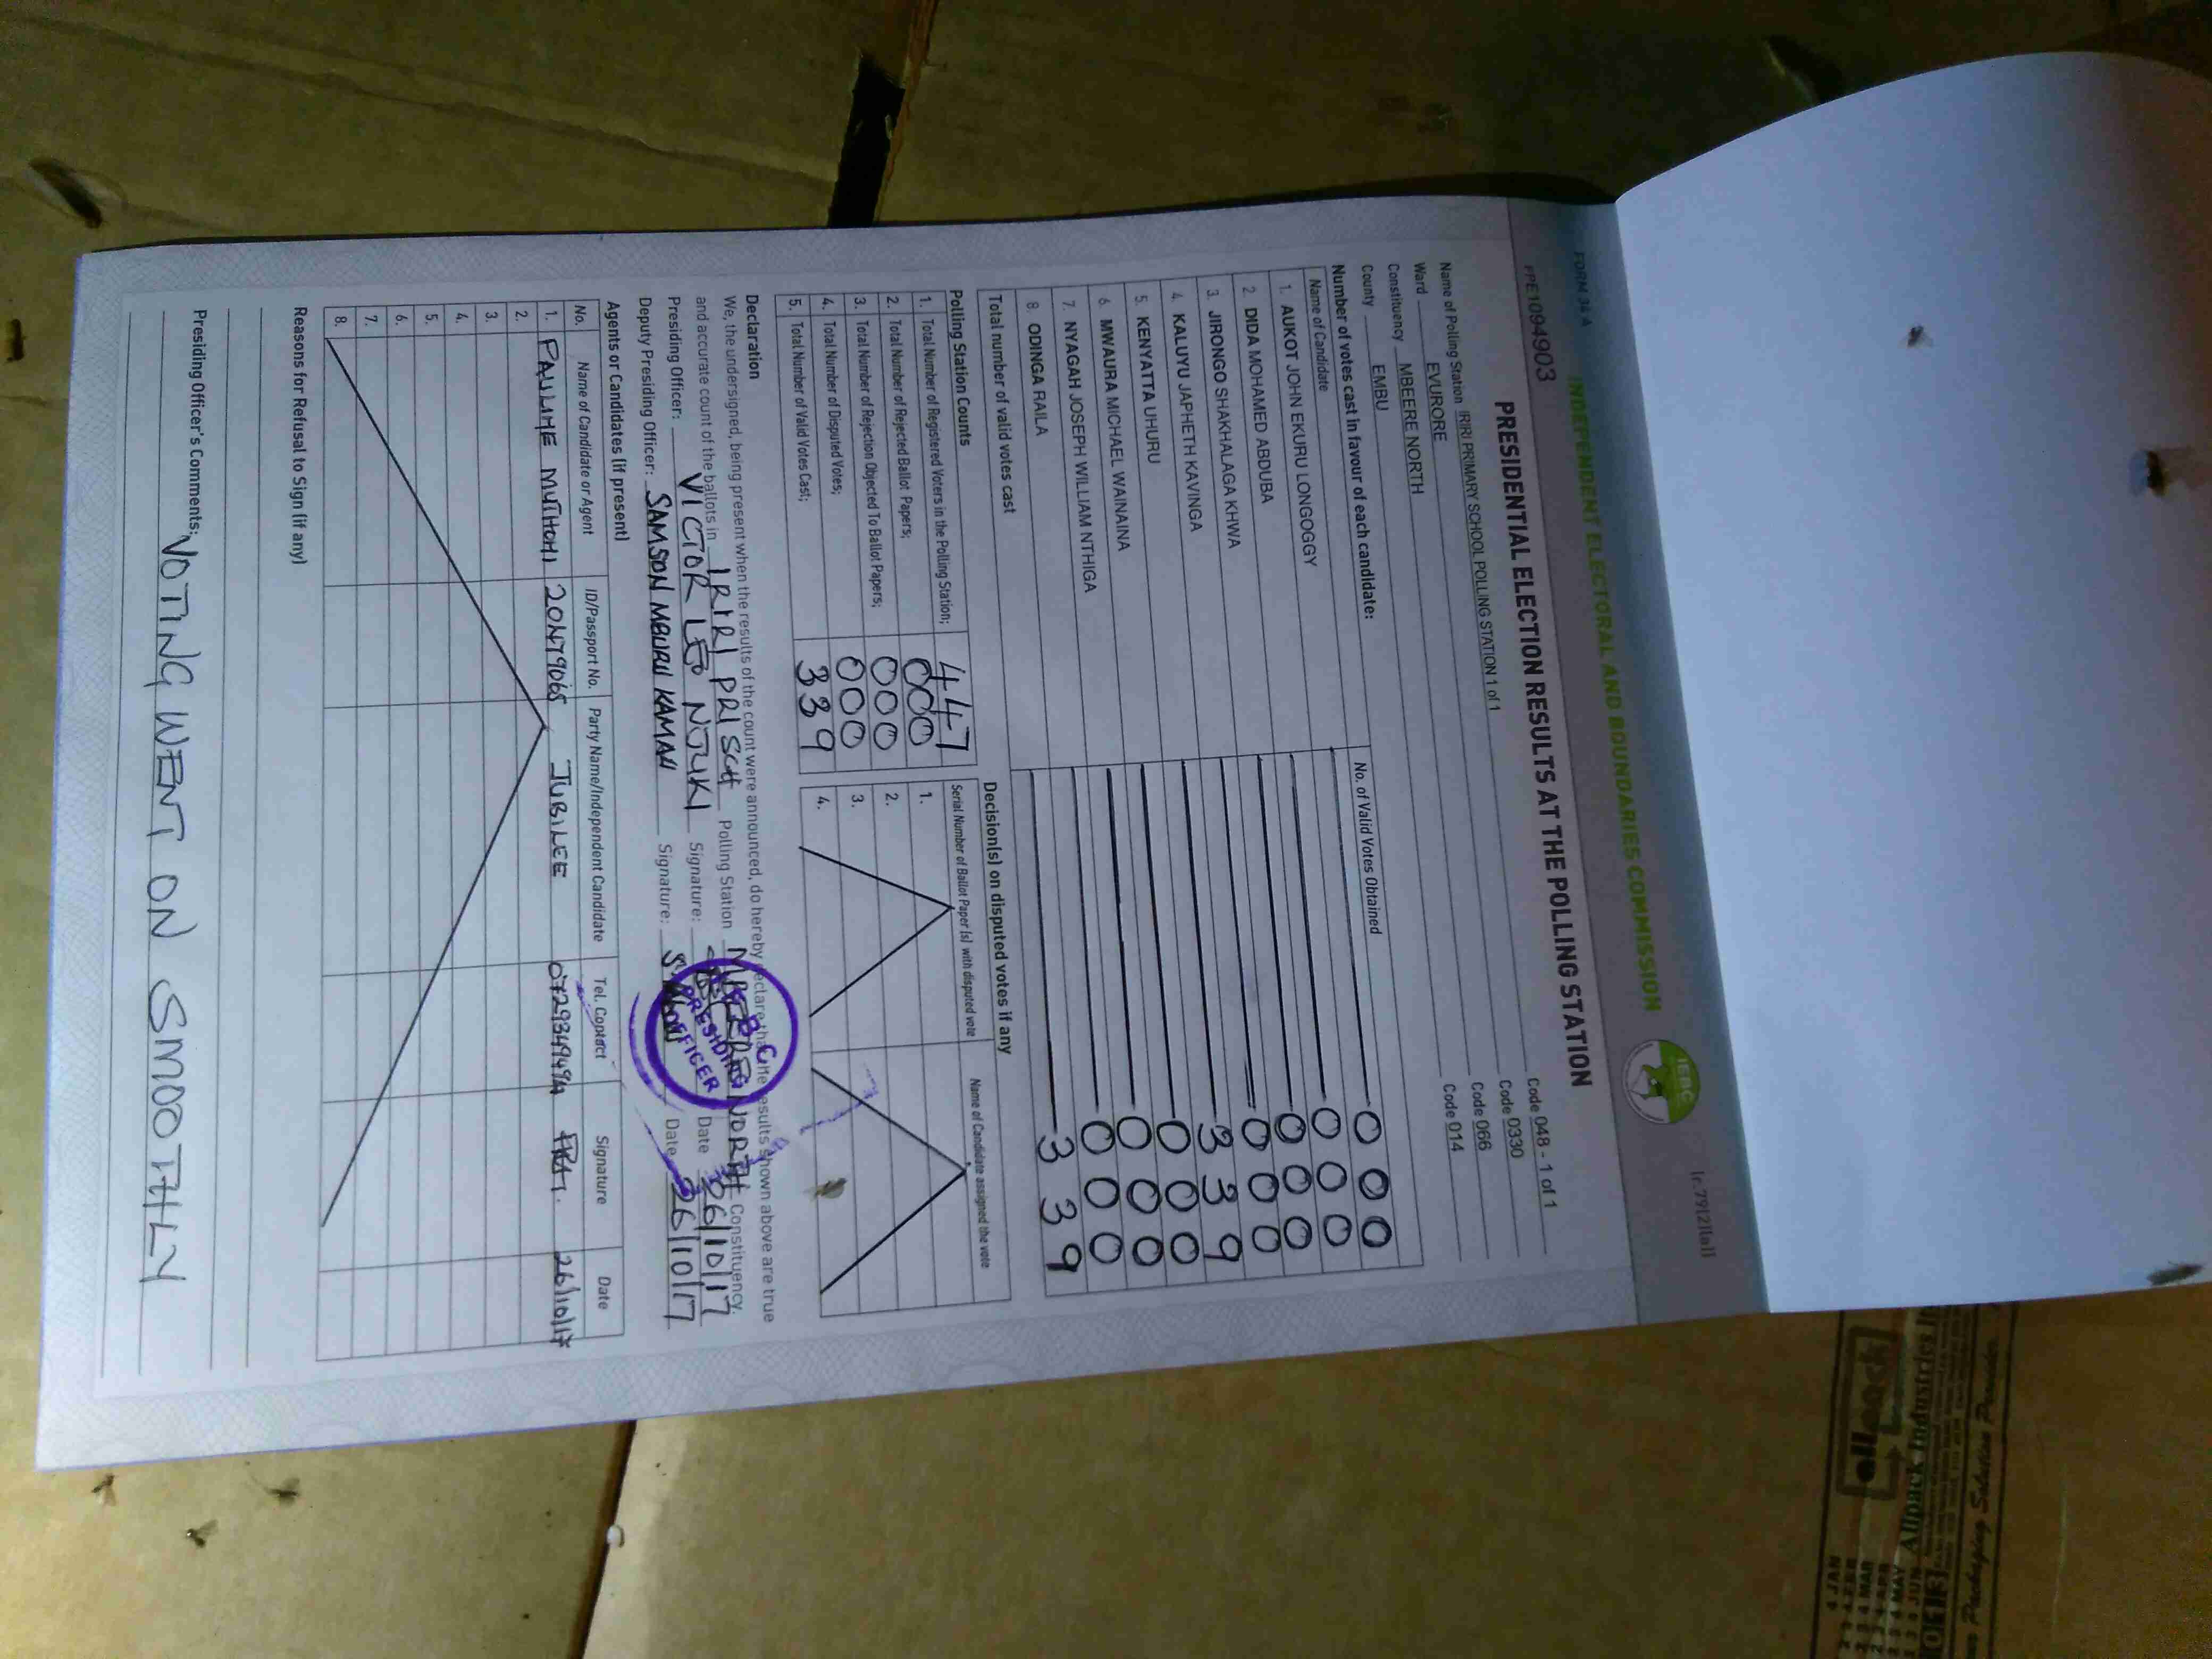 Ir.79(2)(a)
FORM 34 A
INDEPENDENT ELECTORAL AND BOUNDARIES COMMISSION
IEBC
PPE1094903
PRESIDENTIAL ELECTION RESULTS AT THE POLLING STATION
Name of Polling Station IRIRI PRIMARY SCHOOL POLLING STATION 1 of 1 Code 048 - 1 of 1
Ward EVURORE Code 0330
Constituency MBEERE NORTH Code 066
County EMBU Code 014
Number of votes cast in favour of each candidate:
Name of Candidate No. of Valid Votes Obtained
1. AUKOT JOHN EKURU LONGOGGY 000
2. DIDA MOHAMED ABDUBA 000
3. JIRONGO SHAKHALAGA KHWA 000
4. KALUYU JAPHETH KAVINGA 000
5. KENYATTA UHURU 339
6. MWAURA MICHAEL WAINAINA 000
7. NYAGAH JOSEPH WILLIAM NTHIGA 000
8. ODINGA RAILA 000
Total number of valid votes cast 339
Polling Station Counts
1. Total Number of Registered Voters in the Polling Station; 447
2. Total Number of Rejected Ballot Papers; 000
3. Total Number of Rejection Objected To Ballot Papers; 000
4. Total Number of Disputed Votes; 000
5. Total Number of Valid Votes Cast; 339
Decision(s) on disputed votes if any
Serial Number of Ballot Paper (s) with disputed vote Name of Candidate assigned the vote
1.
2.
3.
4.
Declaration
We, the undersigned, being present when the results of the count were announced, do hereby declare that the results shown above are true
and accurate count of the ballots in IRIRI PRI SCH Polling Station MBEERE NORTH Constituency.
Presiding Officer: VICTOR LEO NJUKI Signature: Date 26/10/17
Deputy Presiding Officer: SAMSON Signature: Date 26/10/17
PRESIDING
OFFICER
Agents or Candidates (if present)
No. Name of Candidate or Agent ID/Passport No. Party Name/Independent Candidate Tel. Contact Signature Date
1. PAULINE MUTHONI JUBILEE 26/10/17
2.
3.
4.
5.
6.
7.
8.
Reasons for Refusal to Sign (if any)
Presiding Officer's Comments; VOTING WENT ON SMOOTHLY